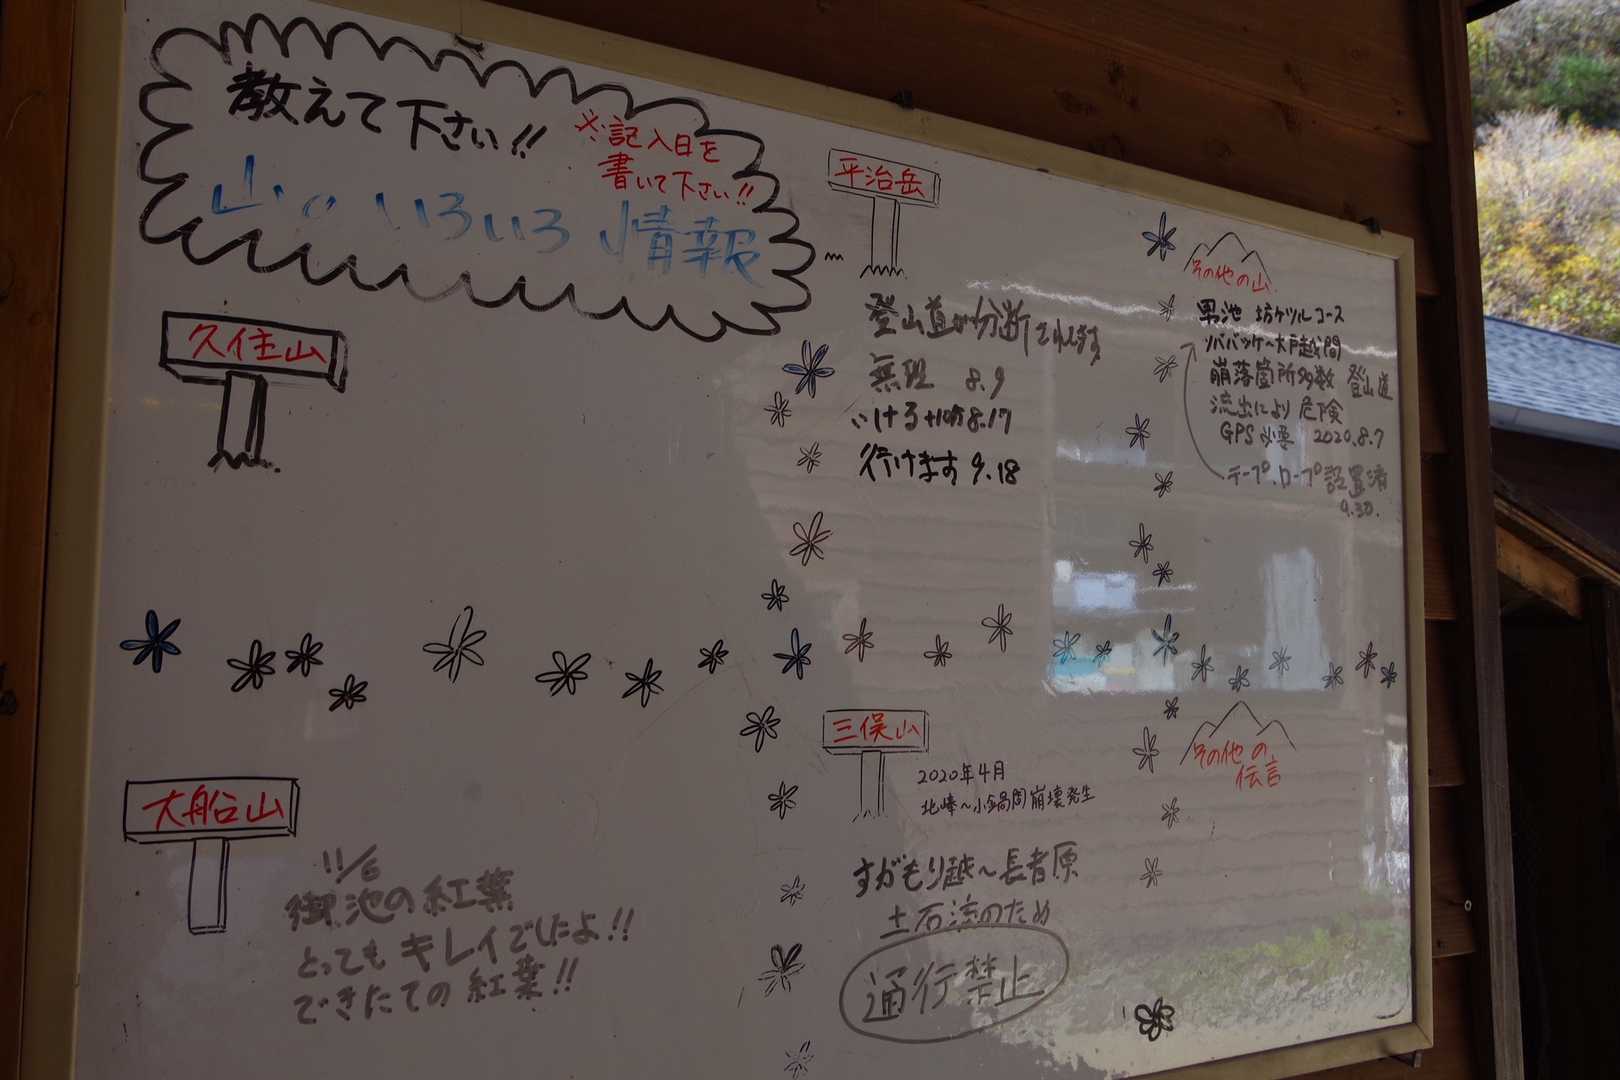 教えて下さい!!
※記入日を
書いて下さい!!
山のいろいろ情報
久住山
平治岳
登山道が分断されてます
無理 8.9
いける 8.17
行けます 9.18
その他の山
男池 坊ガツルコース
ソババッケ~大戸越間
崩落箇所多数 登山道
流出により危険
GPS必要 2020.8.7
テープ.ロープ設置済
9.30.
大船山
11/6
御池の紅葉
とってもキレイでしたよ!!
できたての紅葉!!
三俣山
2020年4月
北峰~小鍋間崩壊発生
すがもり越~長者原
土石流のため
通行禁止
その他の
伝言